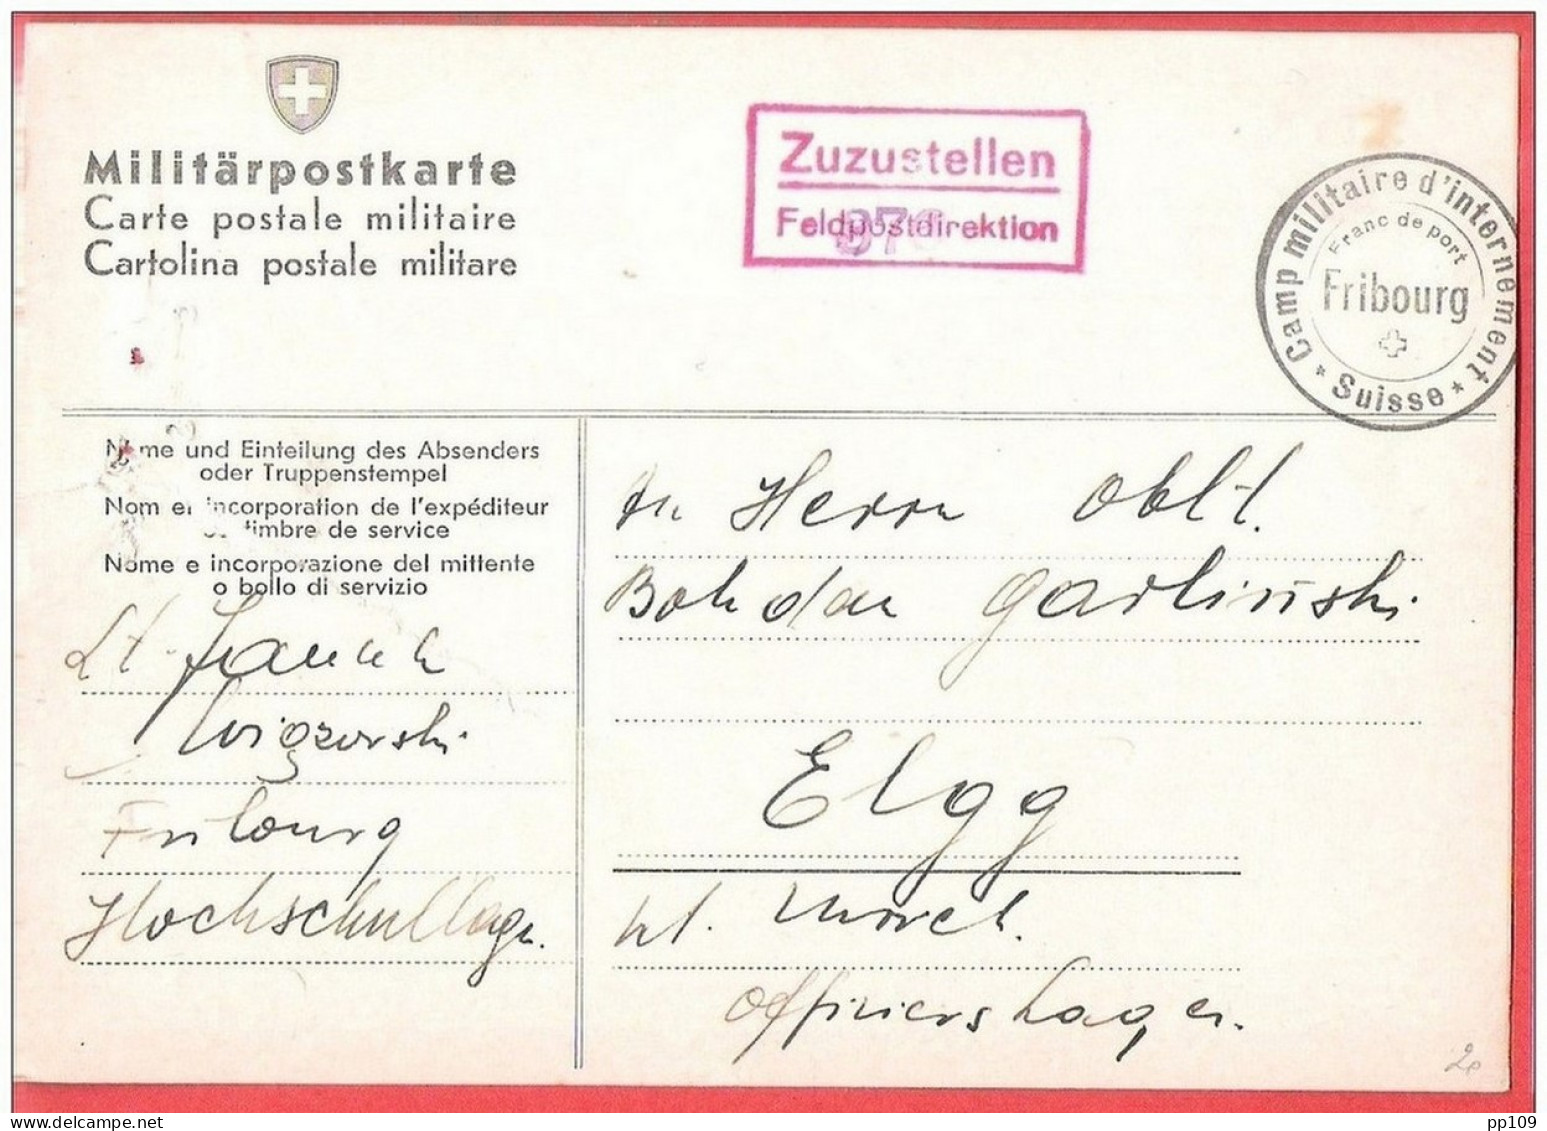 Militärpostkarte
Carte postale militaire
Cartolina postale militare
Zuzustellen
Feldpostdirektion
Camp militaire d'internement
Franc de port
Fribourg
* Suisse *
Name und Einteilung des Absenders
oder Truppenstempel
Nom et incorporation de l'expéditeur
ou timbre de service
Nome e incorporazione del mittente
o bollo di servizio
Lt.
Fribourg
Hochschullager.
An Herrn Oblt.
Bohdan Garliński
Elgg
kt. Zürich.
Offizierslager.
pp109